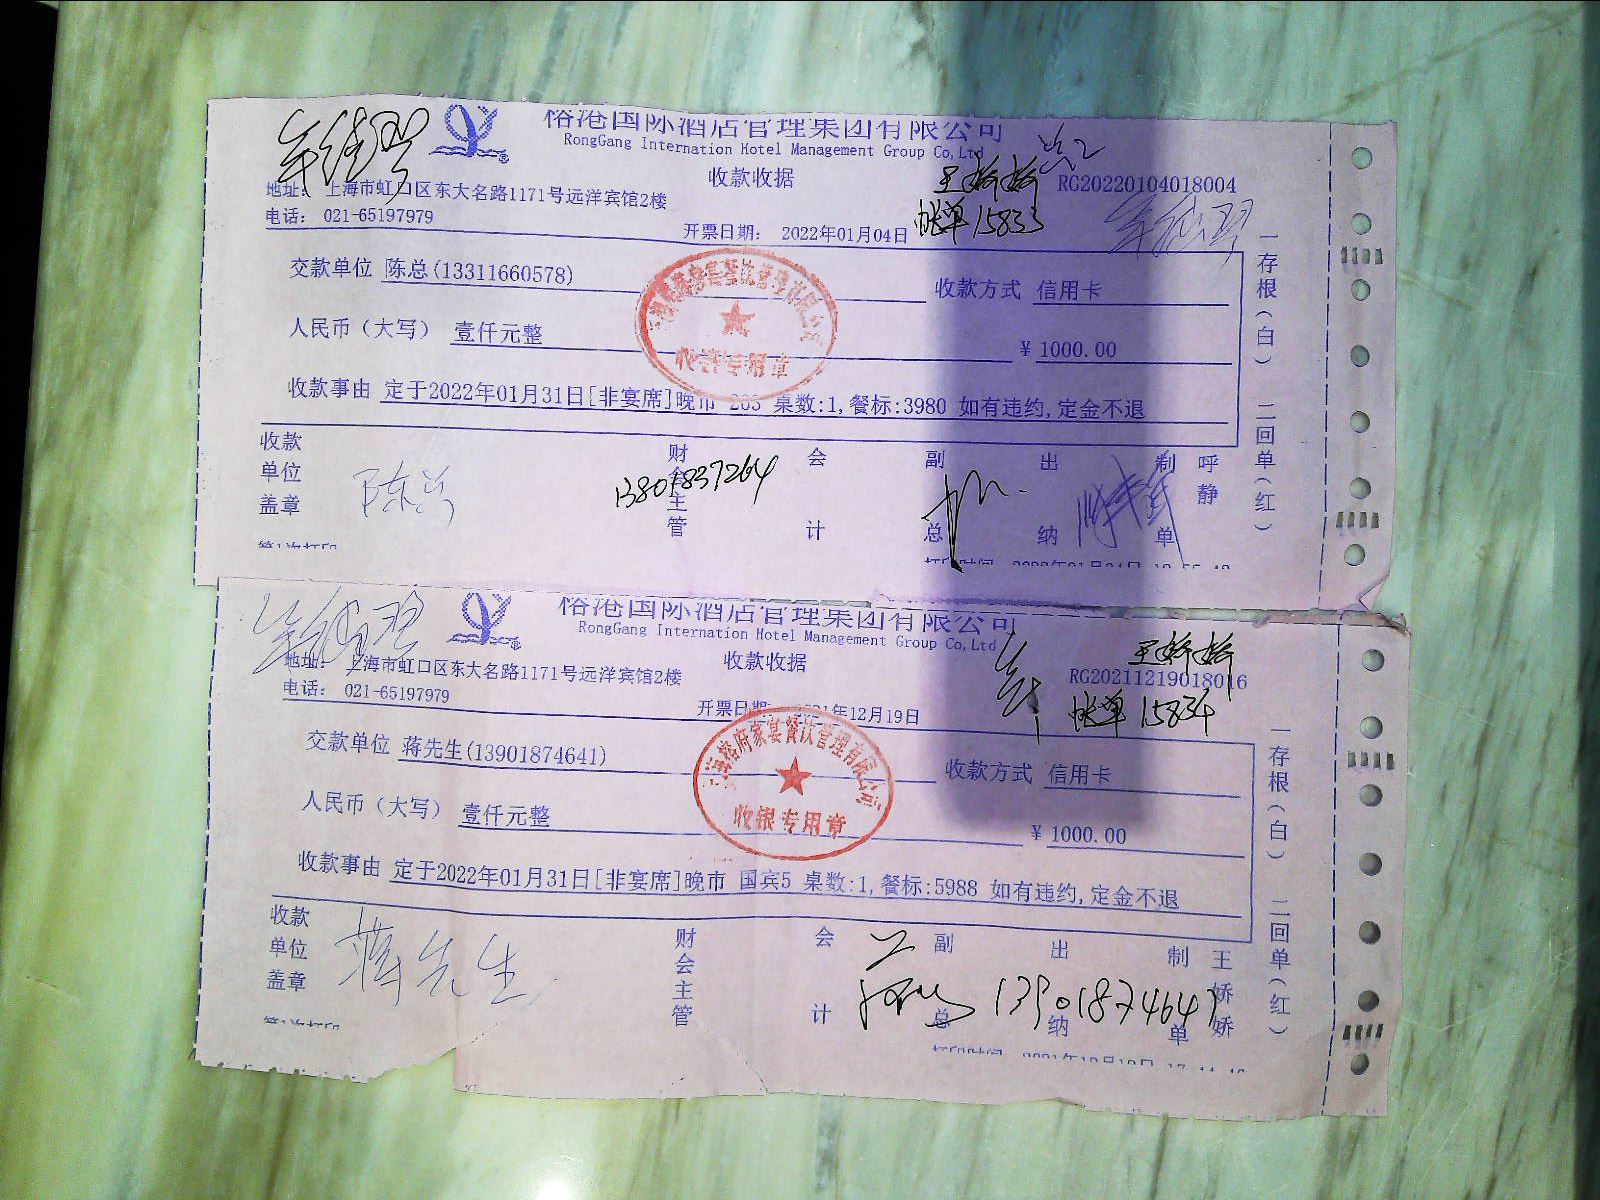 榕港国际酒店管理集团有限公司
RongGang Internation Hotel Management Group Co,Ltd
收款收据
王娇娇
RG20220104018004
地址： 上海市虹口区东大名路1171号远洋宾馆2楼
电话： 021-65197979
开票日期： 2022年01月04日
帐单 15833
交款单位 陈总(13311660578)
收款方式 信用卡
人民币（大写） 壹仟元整
¥ 1000.00
收银专用章
收款事由 定于2022年01月31日[非宴席]晚市 203 桌数:1,餐标:3980 如有违约,定金不退
收款单位盖章
陈总
财会主管
会计
副总
出纳
制单
呼静
一存根（白） 二回单（红）
榕港国际酒店管理集团有限公司
RongGang Internation Hotel Management Group Co,Ltd
收款收据
王娇娇
RG20211219018016
地址： 上海市虹口区东大名路1171号远洋宾馆2楼
电话： 021-65197979
开票日期： 2021年12月19日
帐单 15834
交款单位 蒋先生(13901874641)
收款方式 信用卡
人民币（大写） 壹仟元整
¥ 1000.00
上海榕府家宴餐饮管理有限公司
收银专用章
收款事由 定于2022年01月31日[非宴席]晚市 国宾5 桌数:1,餐标:5988 如有违约,定金不退
收款单位盖章
蒋先生
财会主管
会计
副总
出纳
制单
王娇娇
13901874641
一存根（白） 二回单（红）